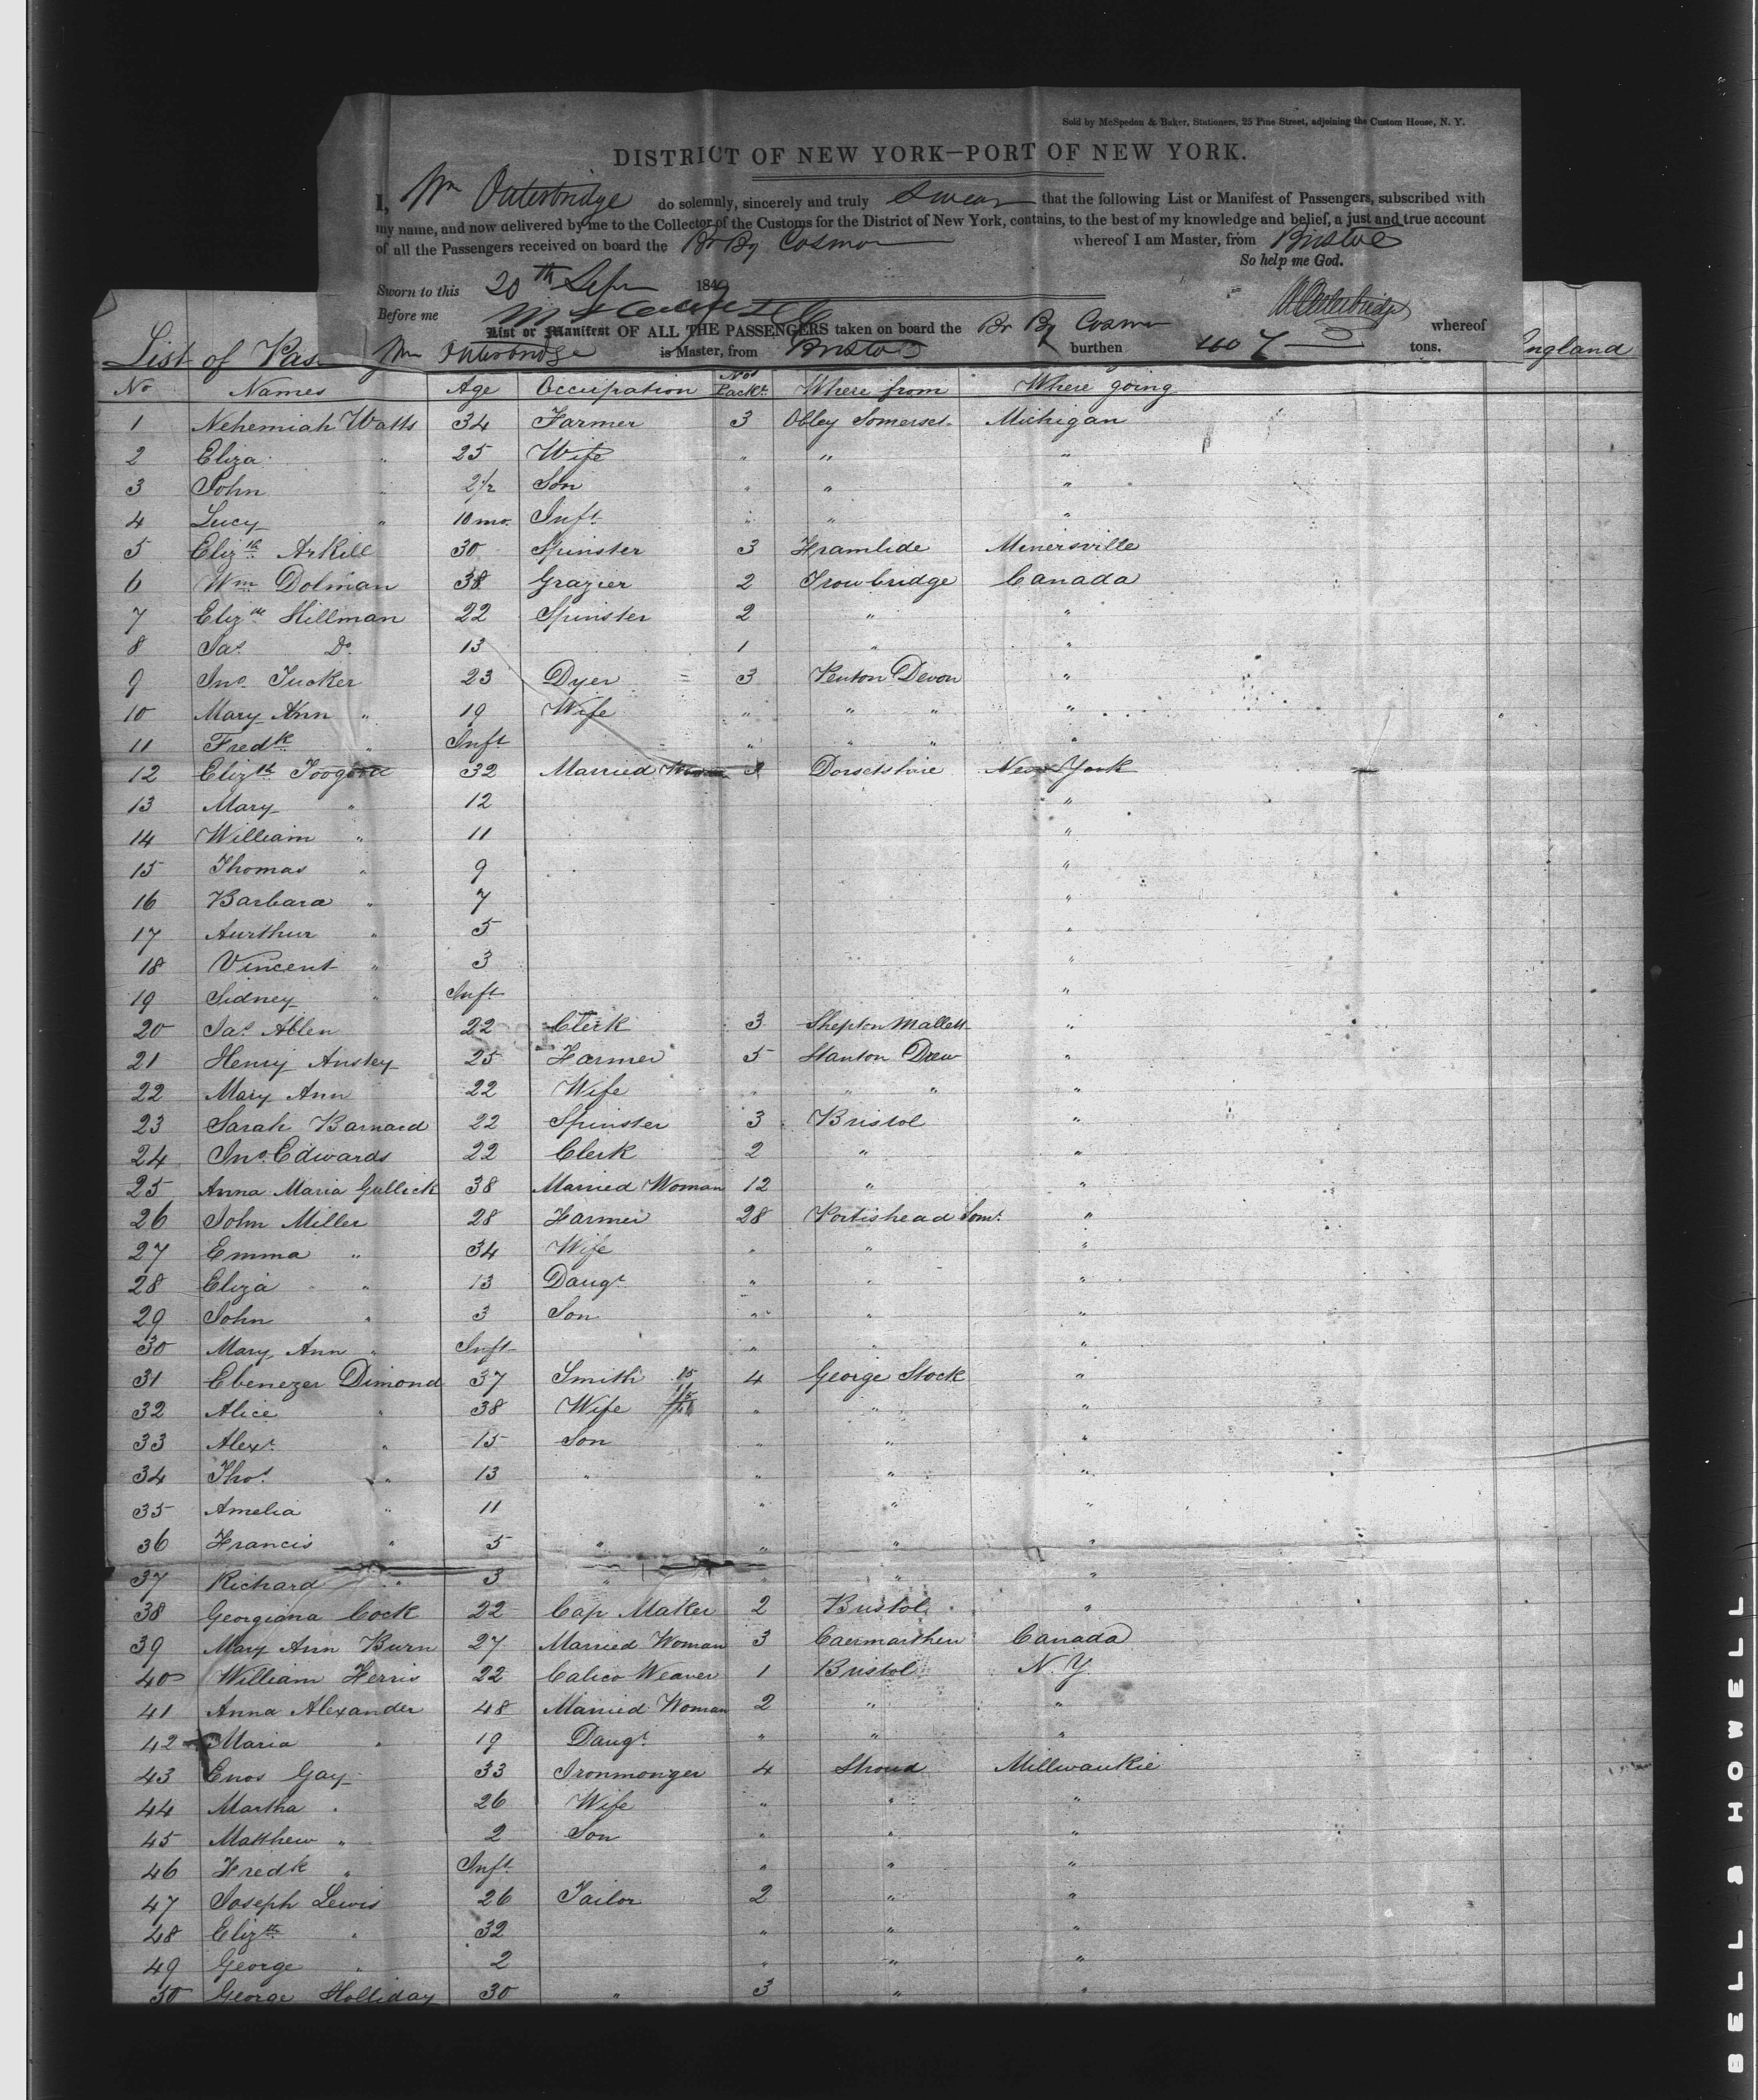 Sold by McSpedon & Baker, Stationers, 25 Pine Street, adjoining the Custom House, N. Y.
DISTRICT OF NEW YORK—PORT OF NEW YORK.
I, Wm Outerbridge do solemnly, sincerely and truly swear that the following List or Manifest of Passengers, subscribed with
my name, and now delivered by me to the Collector of the Customs for the District of New York, contains, to the best of my knowledge and belief, a just and true account
of all the Passengers received on board the Br Bg Cosmo whereof I am Master, from Bristol
So help me God.
Sworn to this 20th Sepr 1849
Before me
List or Manifest OF ALL THE PASSENGERS taken on board the Br Bg Cosmo whereof
Wm Outerbridge is Master, from Bristol burthen 407 tons.
List of Pas England
No Names Age Occupation Nos Packs. Where from Where going
1 Nehemiah Watts 34 Farmer 3 Obley Somerset. Michigan
2 Eliza " 25 Wife " " "
3 John " 2 1/2 Son " " "
4 Lucy " 10 mo. Inft. " " "
5 Elizth Arkill 30 Spinster 3 Framlide Minersville
6 Wm Dolman 38 Grazier 2 Trowbridge Canada
7 Elizth Hillman 22 Spinster 2 " "
8 Jas. Do. 13 1 " "
9 Jno. Tucker 23 Dyer 3 Penton Devon "
10 Mary Ann " 19 Wife " " " "
11 Fredk " Inft " " " "
12 Elizth Toogood 32 Married Woman 3 Dorsetshire New York
13 Mary " 12 "
14 William " 11 "
15 Thomas " 9 "
16 Barbara " 7 "
17 Aurthur " 5 "
18 Vincent " 3 "
19 Sidney " Inft "
20 Jas Ablen 22 Clerk 3 Shepton Mallett "
21 Henry Anstey 25 Farmer 5 Stanton Drew "
22 Mary Ann 22 Wife " " " "
23 Sarah Barnard 22 Spinster 3 Bristol "
24 Jno. Edwards 22 Clerk 2 " "
25 Anna Maria Gullick 38 Married Woman 12 " "
26 John Miller 28 Farmer 28 Portishead Somt. "
27 Emma " 34 Wife " " "
28 Eliza " 13 Daugt. " " "
29 John " 3 Son " " "
30 Mary Ann " Inft " " "
31 Ebenezer Dimond 37 Smith 4 George Stock "
32 Alice " 38 Wife " " "
33 Alexr. " 15 Son " " "
34 Thos. " 13 " " " "
35 Amelia " 11 " " "
36 Francis " 5 " " " "
37 Richard " 3 " " " "
38 Georgiana Cock 22 Cap Maker 2 Bristol "
39 Mary Ann Burn 27 Married Woman 3 Caermarthen Canada
40 William Ferris 22 Calico Weaver 1 Bristol N. Y
41 Anna Alexander 48 Married Woman 2 " "
42 Maria " 19 Daugt. " " "
43 Enos Gay 33 Ironmonger 4 Stroud Millwaukie
44 Martha " 26 Wife " " "
45 Matthew " 2 Son " " "
46 Fredk " Inft. " " "
47 Joseph Lewis 26 Tailor 2 " "
48 Elizth " 32 " " "
49 George " 2 " " "
50 George Holliday 30 " 3 " "
BELL & HOWELL